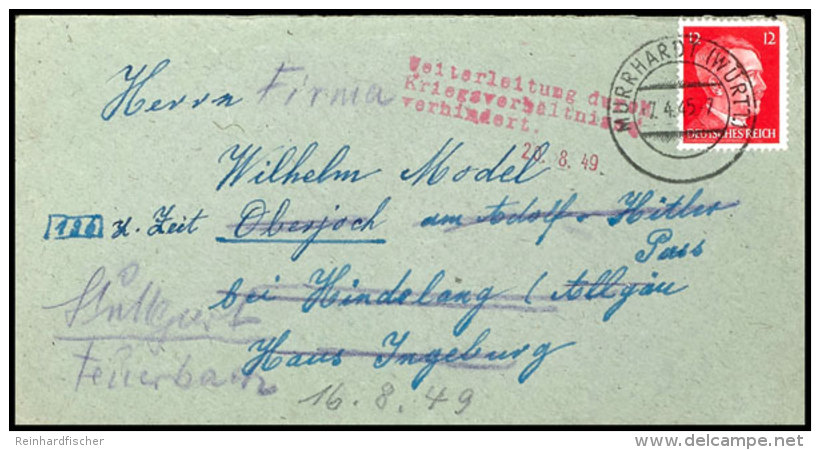 12 12
DEUTSCHES REICH
MURRHARDT (WÜRTT)
4.45-7
Weiterleitung durch
Kriegsverhältnis
verhindert.
20. 8. 49.
Herrn Firma
Wilhelm Model
z. Zeit Oberjoch am Adolf-Hitler
Pass
bei Hindelang / Allgäu
Haus Ingeburg
Stuttgart
Feuerbach
16.8.49
Reinhardfischer
www.delcampe.net